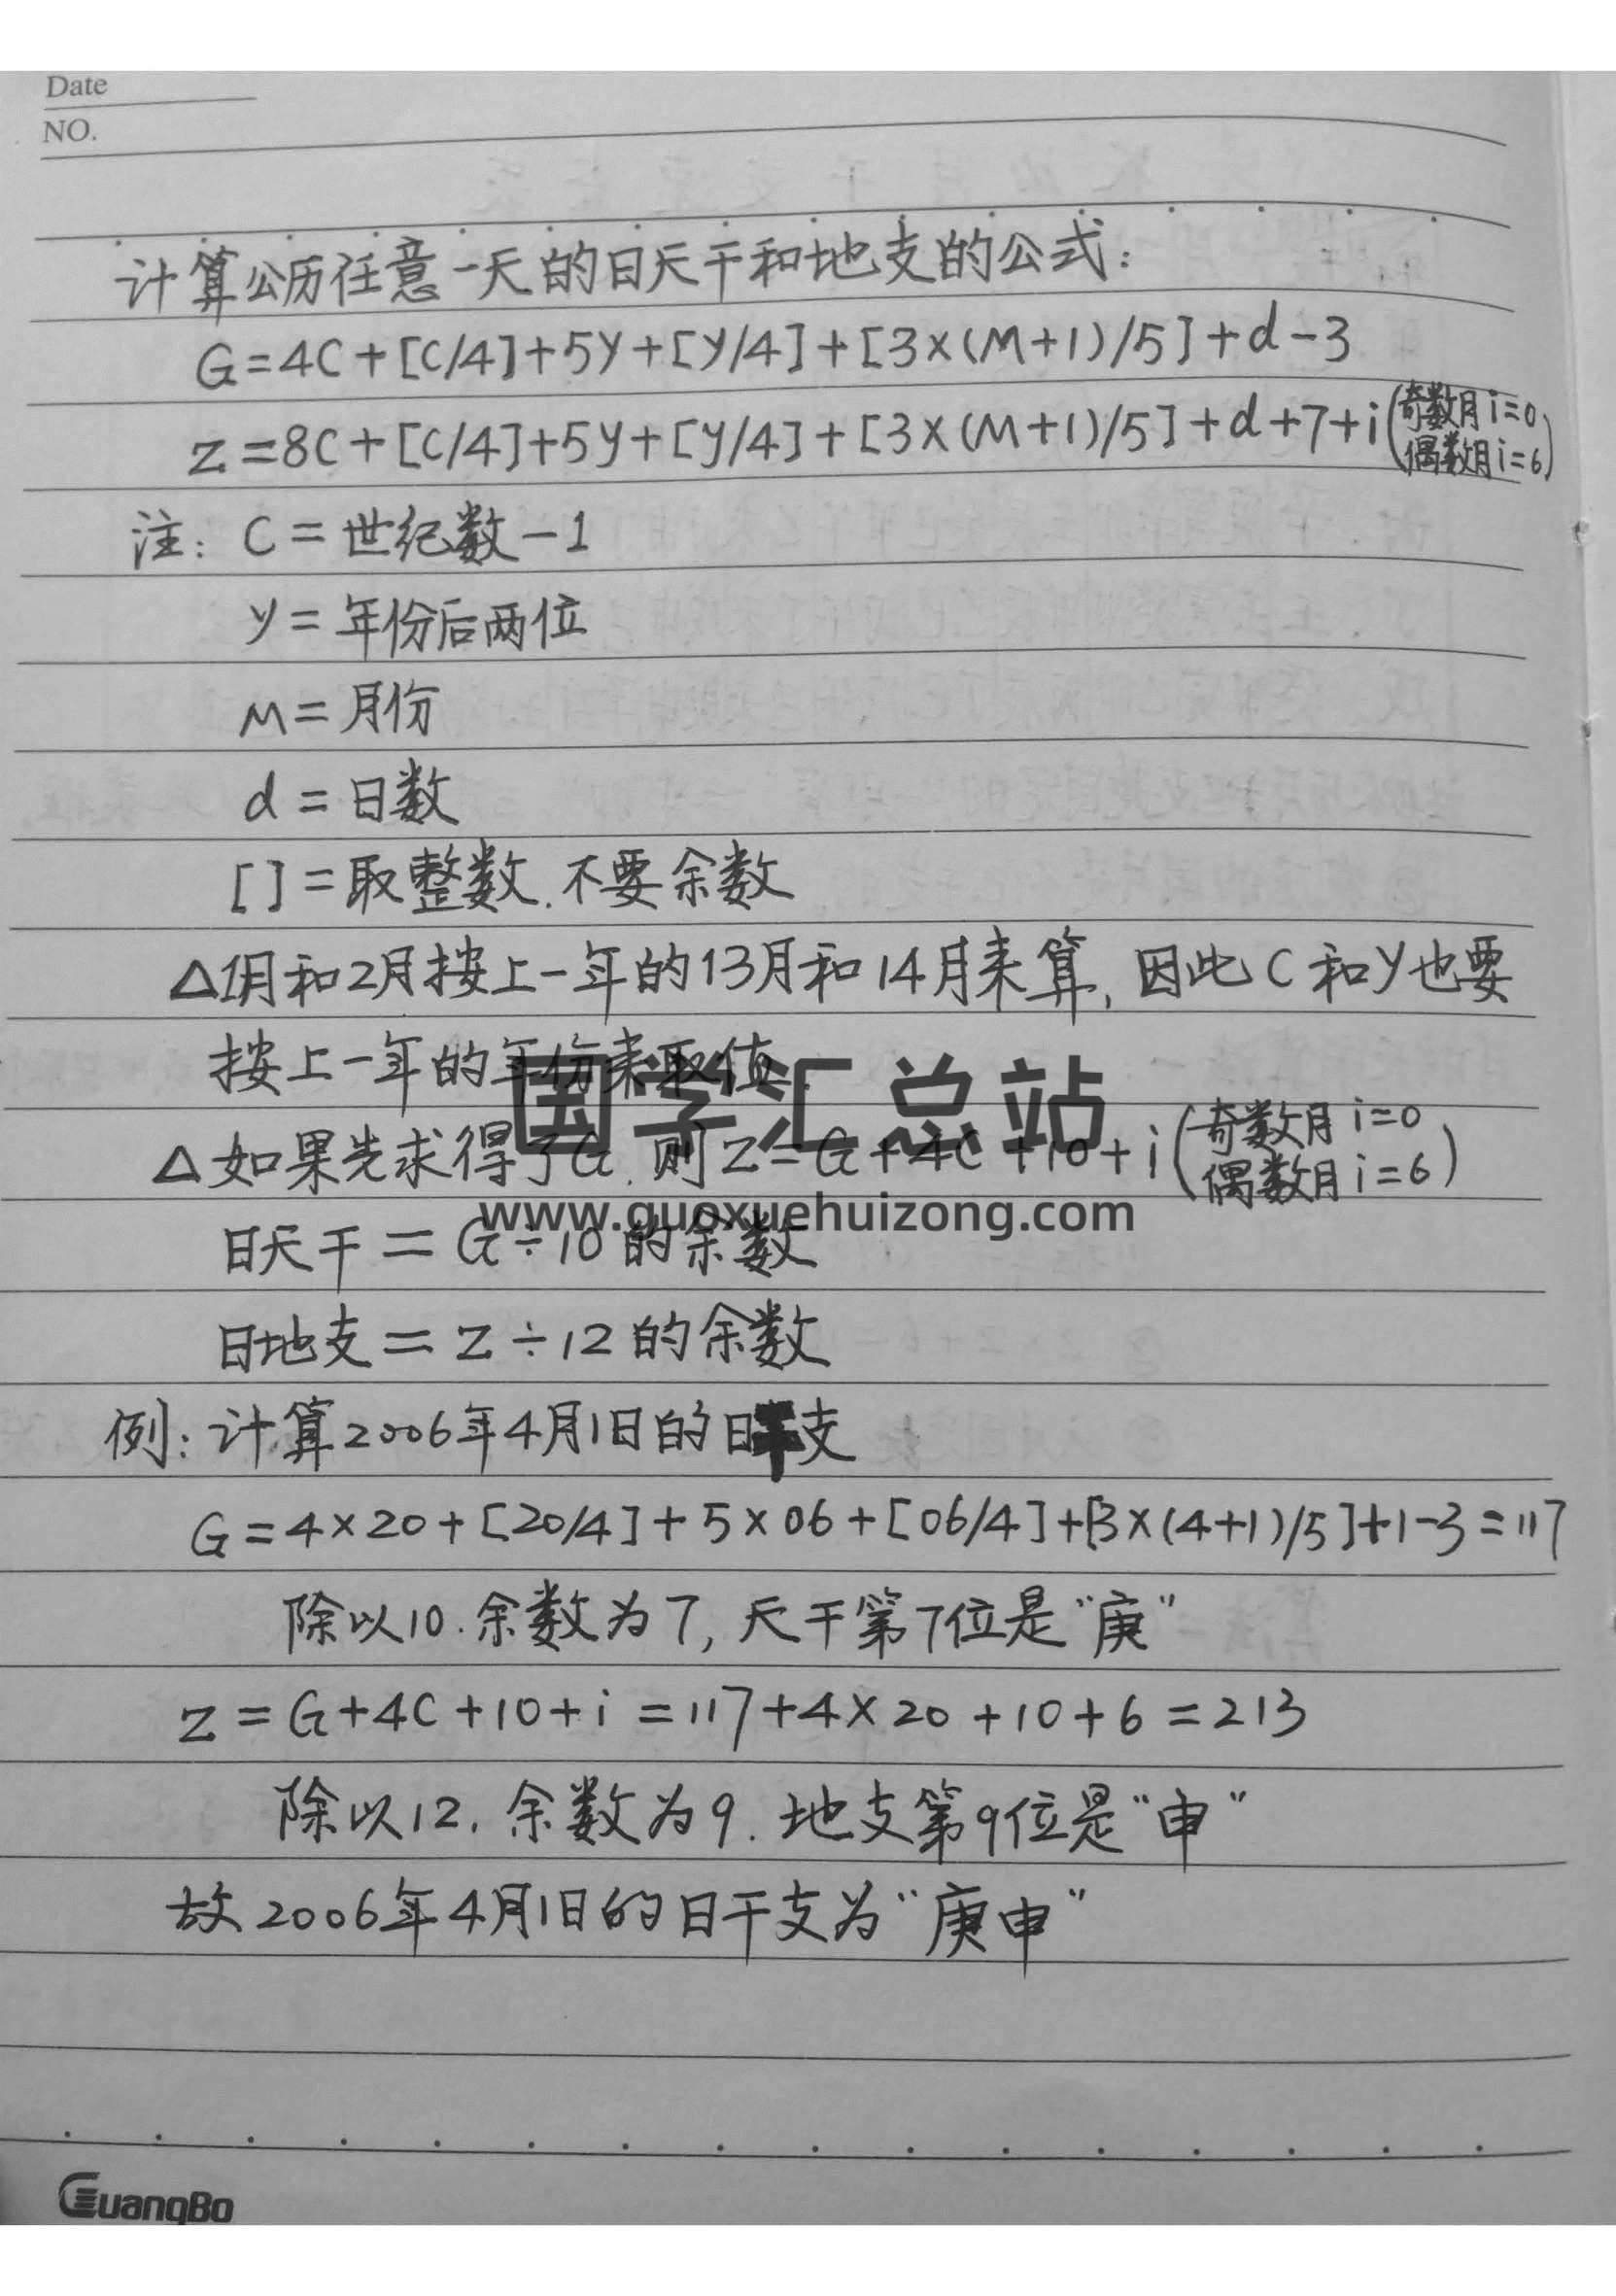 Date
NO.
计算公历任意一天的日天干和地支的公式：
G=4C+[C/4]+5y+[y/4]+[3×(M+1)/5]+d-3
Z=8C+[C/4]+5y+[y/4]+[3×(M+1)/5]+d+7+i(奇数月i=0
偶数月i=6)
注：C=世纪数-1
y=年份后两位
M=月份
d=日数
[]=取整数.不要余数
△1月和2月按上一年的13月和14月来算,因此C和y也要
按上一年的年份来取值.
国学汇总站
△如果先求得了G.则Z=G+4C+10+i(奇数月i=0
偶数月i=6)
www.guoxuehuizong.com
日天干=G÷10的余数
日地支=Z÷12的余数
例：计算2006年4月1日的日干支
G=4×20+[20/4]+5×06+[06/4]+[3×(4+1)/5]+1-3=117
除以10.余数为7,天干第7位是"庚"
Z=G+4C+10+i=117+4×20+10+6=213
除以12.余数为9.地支第9位是"申"
故2006年4月1日的日干支为"庚申"
GuangBo